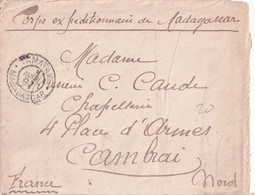 Corps expéditionnaire de Madagascar
Madame
C. Caude
Chapellerie
4 Place d'Armes
Cambrai
Nord
France
20